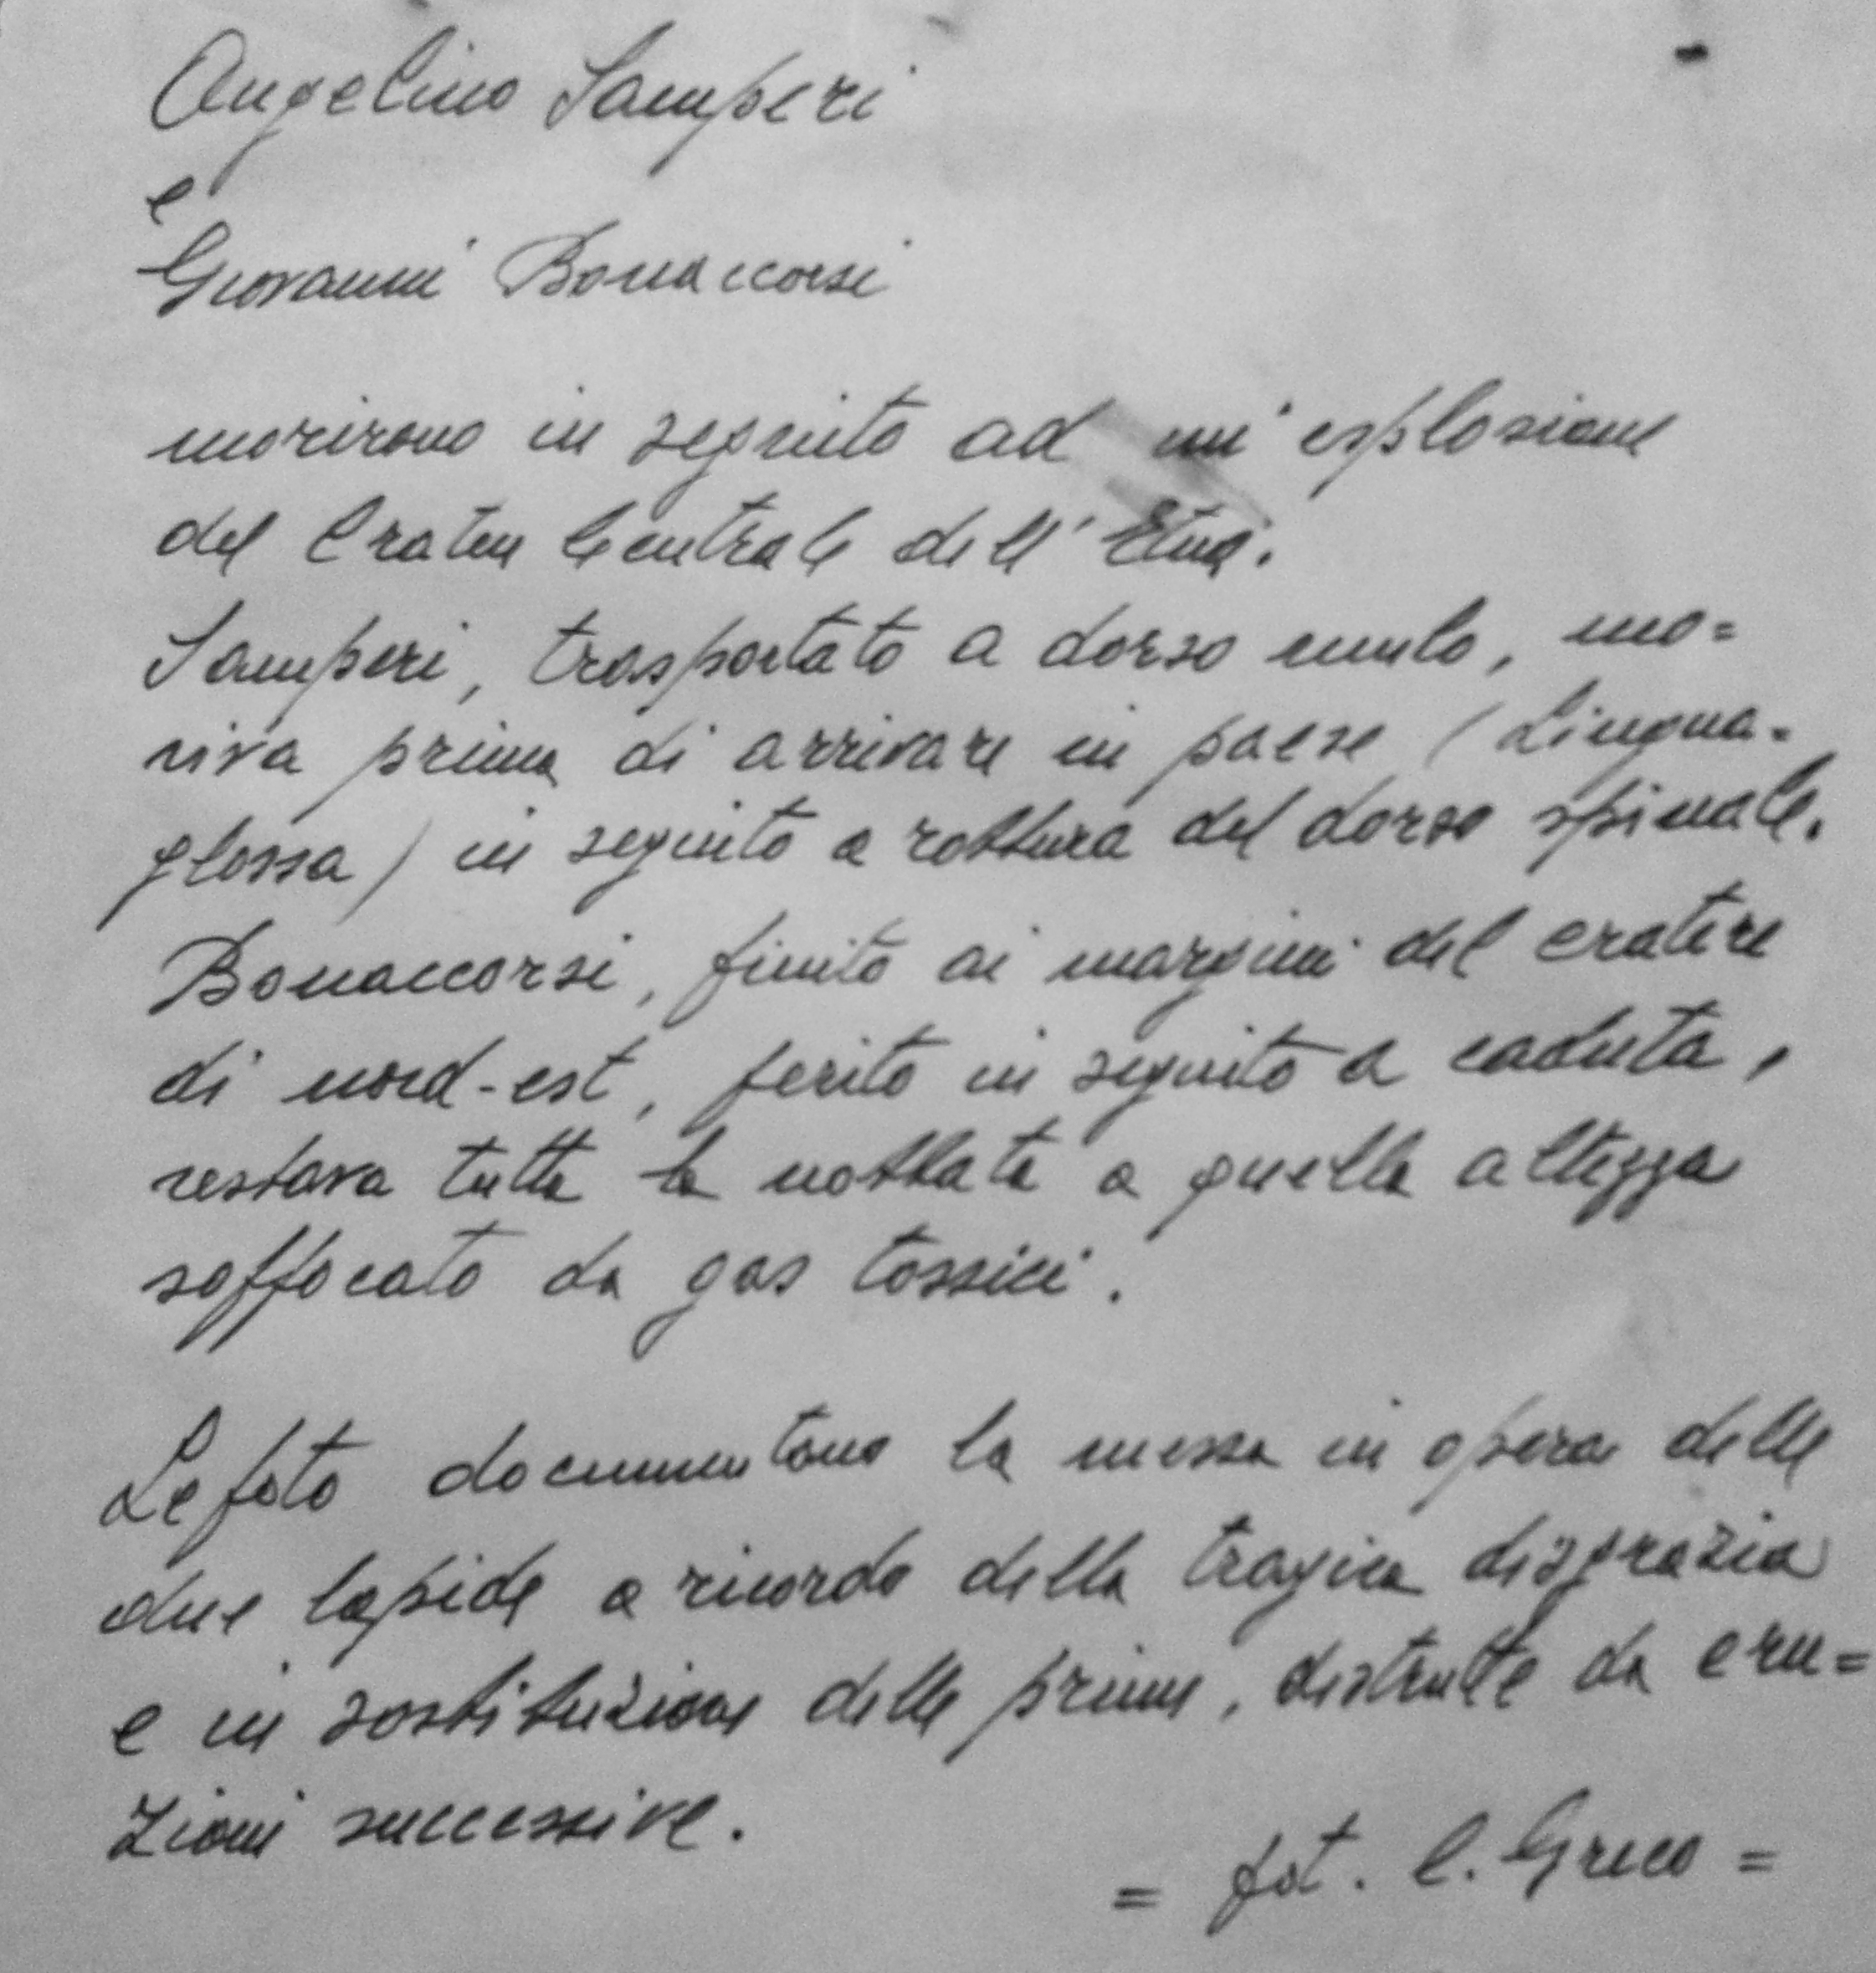 Angelino Samperi
e
Giovanni Bonaccorsi
morirono in seguito ad un' esplosione
del Cratere Centrale dell' Etna.
Samperi, trasportato a dorso mulo, mo=
riva prima di arrivare in paese (Lingua-
glossa) in seguito a rottura del dorso spinale.
Bonaccorsi, finito ai margini del cratere
di nord-est, ferito in seguito a caduta,
restava tutta la nottata a quella altezza
soffocato da gas tossici.
Le foto documentano la messa in opera delle
due lapide a ricordo della tragica disgrazia
e in sostituzione delle prime, distrutte da eru=
zioni successive.
= fot. C. Greco =